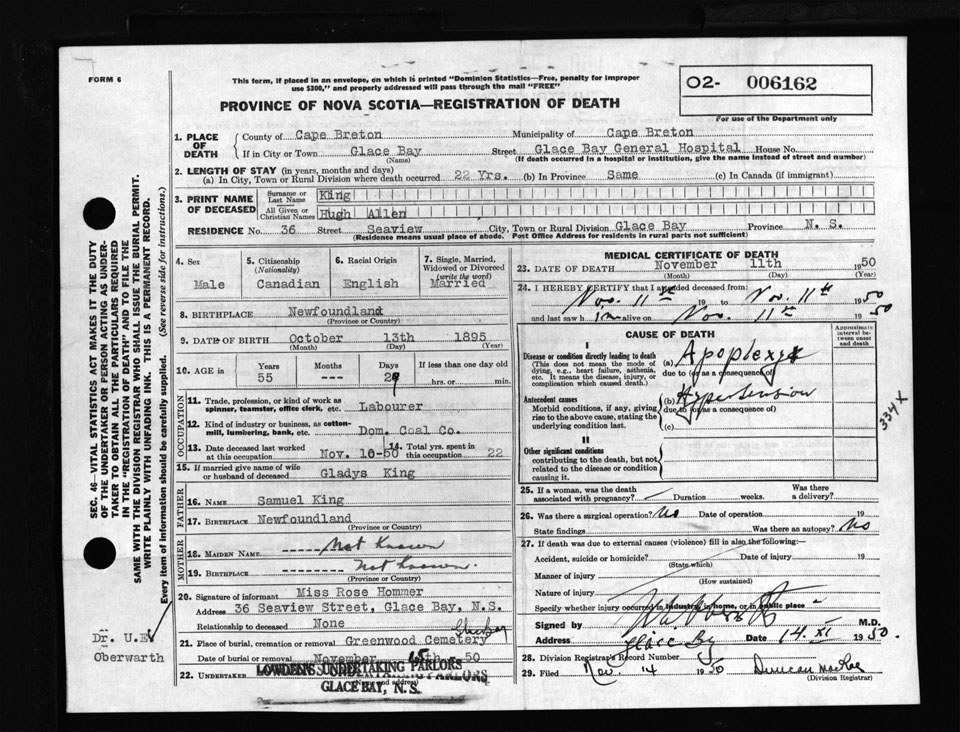 FORM 6
This form, if placed in an envelope, on which is printed "Dominion Statistics—Free, penalty for improper
use $300," and properly addressed will pass through the mail "FREE"
PROVINCE OF NOVA SCOTIA—REGISTRATION OF DEATH
O2- 006162
For use of the Department only
1. PLACE OF DEATH
County of Cape Breton Municipality of Cape Breton
If in City or Town Glace Bay Street Glace Bay General Hospital House No.
(Name) (If death occurred in a hospital or institution, give the name instead of street and number)
2. LENGTH OF STAY (in years, months and days)
(a) In City, Town or Rural Division where death occurred 22 Yrs. (b) In Province Same (c) In Canada (if immigrant)
3. PRINT NAME OF DECEASED
Surname or Last Name King
All Given or Christian Names Hugh Allen
RESIDENCE No. 36 Street Seaview City, Town or Rural Division Glace Bay Province N. S.
(Residence means usual place of abode. Post Office Address for residents in rural parts not sufficient)
4. Sex Male
5. Citizenship (Nationality) Canadian
6. Racial Origin English
7. Single, Married, Widowed or Divorced (write the word) Married
8. BIRTHPLACE Newfoundland
(Province or Country)
9. DATE OF BIRTH October 13th 1895
(Month) (Day) (Year)
10. AGE in Years Months Days If less than one day
55 --- 29 hrs. or min.
OCCUPATION
11. Trade, profession, or kind of work as
spinner, teamster, office clerk, etc. Labourer
12. Kind of industry or business, as cotton-
mill, lumbering, bank, etc. Dom. Coal Co.
13. Date deceased last worked at this occupation Nov. 10-50
14. Total yrs. spent in this occupation 22
15. If married give name of wife
or husband of deceased Gladys King
FATHER
16. NAME Samuel King
17. BIRTHPLACE Newfoundland
(Province or Country)
MOTHER
18. MAIDEN NAME ----- Not Known
19. BIRTHPLACE -------- Not Known.
(Province or Country)
20. Signature of informant Miss Rose Hommer
Address 36 Seaview Street, Glace Bay, N.S.
Relationship to deceased None
21. Place of burial, cremation or removal Greenwood Cemetery
Date of burial or removal November 15th 50
22. UNDERTAKER LOWDEN'S UNDERTAKING PARLORS
GLACE BAY, N. S.
MEDICAL CERTIFICATE OF DEATH
23. DATE OF DEATH November 11th 1950
(Month) (Day) (Year)
24. I HEREBY CERTIFY that I attended deceased from:
Nov. 11th 19 to Nov. 11th 1950
and last saw him alive on Nov. 11th 1950
CAUSE OF DEATH
Approximate interval between onset and death
I
Disease or condition directly leading to death
(This does not mean the mode of dying, e.g., heart failure, asthenia, etc. It means the disease, injury, or complication which caused death.)
(a) Apoplexy
due to (or as a consequence of)
Antecedent causes
Morbid conditions, if any, giving rise to the above cause, stating the underlying condition last.
(b) Hypertension
due to (or as a consequence of)
(c)
334X
II
Other significant conditions
contributing to the death, but not related to the disease or condition causing it.
25. If a woman, was the death associated with pregnancy? Duration weeks. Was there a delivery?
26. Was there surgical operation? No Date of operation 19
State findings Was there an autopsy? No
27. If death was due to external causes (violence) fill in also the following:—
Accident, suicide or homicide? Date of injury 19
(State which)
Manner of injury
(How sustained)
Nature of injury
Specify whether injury occurred in industry, in home, or in public place
Signed by M.D.
Address Glace Bay Date 14.XI 1950.
28. Division Registrar's Record Number
29. Filed Nov. 14 1950 Duncan MacRae
(Division Registrar)
SEC. 46—VITAL STATISTICS ACT MAKES IT THE DUTY
OF THE UNDERTAKER OR PERSON ACTING AS UNDER-
TAKER TO OBTAIN ALL THE PARTICULARS REQUIRED
IN THE "REGISTRATION OF DEATH" AND TO FILE THE
SAME WITH THE DIVISION REGISTRAR WHO SHALL ISSUE THE BURIAL PERMIT.
WRITE PLAINLY WITH UNFADING INK. THIS IS A PERMANENT RECORD.
Every item of information should be carefully supplied. (See reverse side for instructions.)
Dr. U.E.
Oberwarth